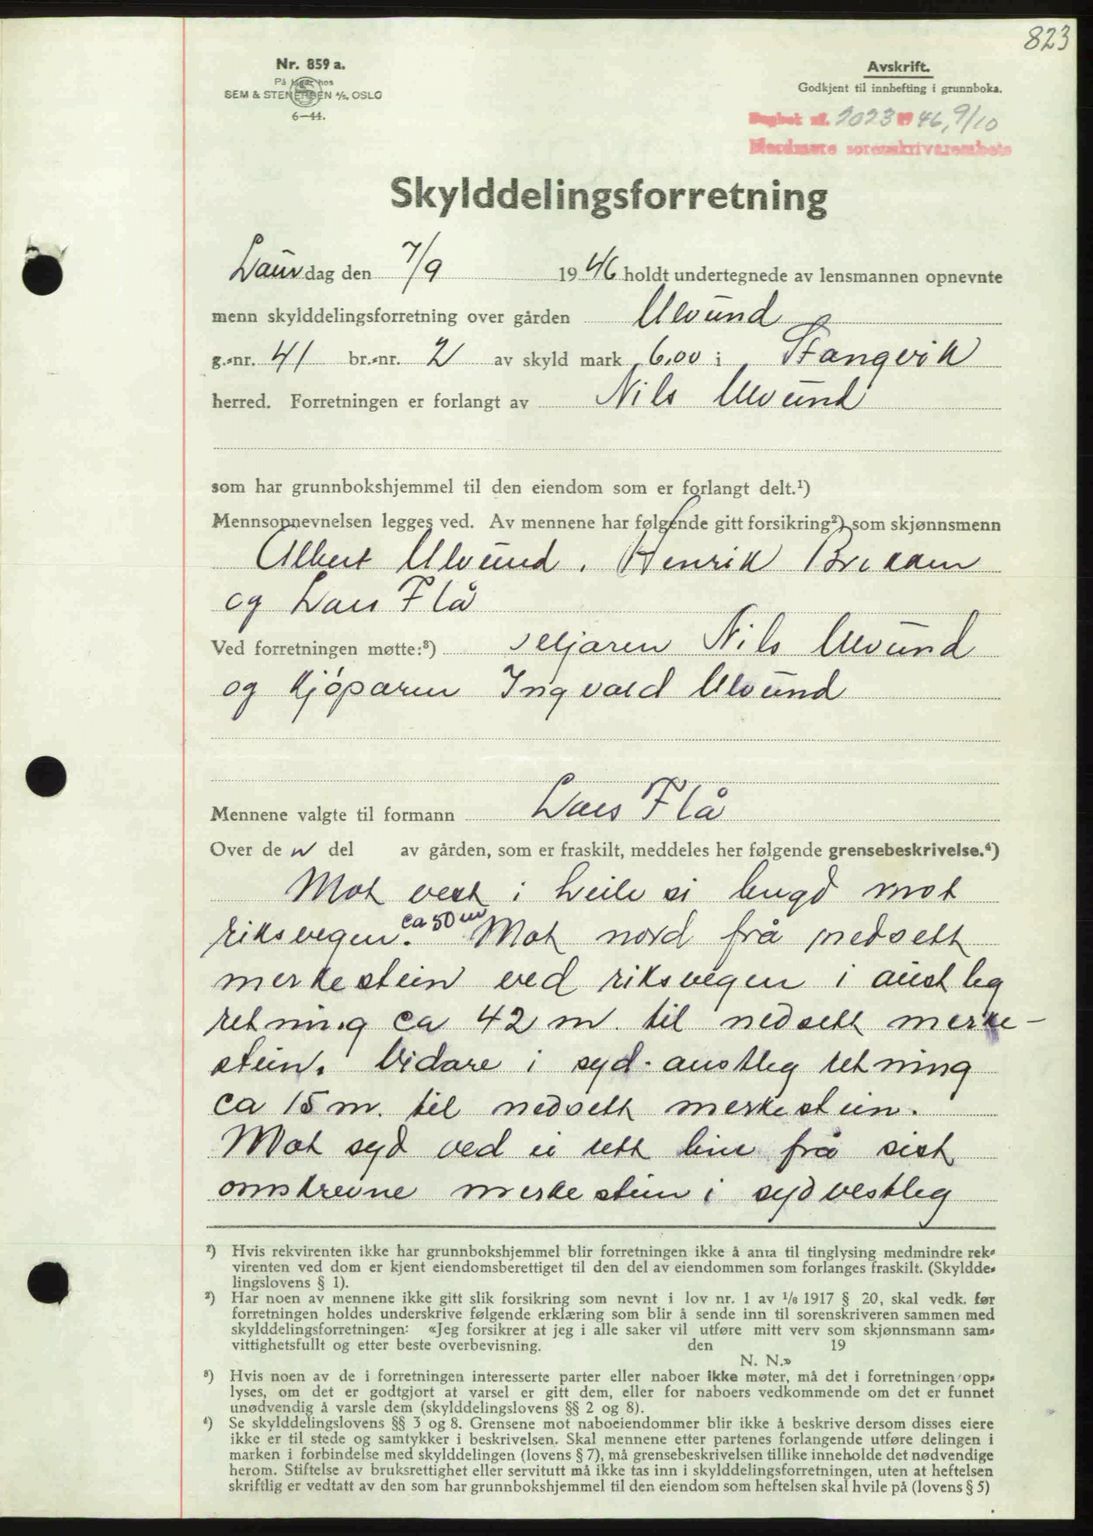 823
Nr. 859 a.
På lager hos
SEM & STENERSEN A/S, OSLO
6—44.
Avskrift.
Godkjent til innhefting i grunnboka.
Dagbok nr. 2023 19 46, 9/10
Nordmøre sorenskriverembete
Skylddelingsforretning
Laurdag den 7/9 1946 holdt undertegnede av lensmannen opnevnte
menn skylddelingsforretning over gården Ulvund
g.-nr. 41 br.-nr. 2 av skyld mark 6,00 i Stangvik
herred. Forretningen er forlangt av Nils Ulvund
som har grunnbokshjemmel til den eiendom som er forlangt delt.¹)
Mennsopnevnelsen legges ved. Av mennene har følgende gitt forsikring²) som skjønnsmenn
Albert Ulvund, Henrik
og Lars Flå
Ved forretningen møtte:³) seljaren Nils Ulvund
og kjøparen Ingvald Ulvund
Mennene valgte til formann Lars Flå
Over den del av gården, som er fraskilt, meddeles her følgende grensebeskrivelse.⁴)
Mot vest i heile si lengd mot
riksvegen. ca 50 m Mot nord frå nedsett
merkestein ved riksvegen i austleg
retning ca 42 m. til nedsett merke-
stein. Vidare i syd-austleg retning
ca 15 m. til nedsett merkestein.
Mot syd ved ei rett line frå sist
omskrevne merkestein i sydvestleg
¹) Hvis rekvirenten ikke har grunnbokshjemmel blir forretningen ikke å anta til tinglysing medmindre rek-
virenten ved dom er kjent eiendomsberettiget til den del av eiendommen som forlanges fraskilt. (Skyldde-
lingslovens § 1).
²) Har noen av mennene ikke gitt slik forsikring som nevnt i lov nr. 1 av 1/6 1917 § 20, skal vedk. før
forretningen holdes underskrive følgende erklæring som blir å sende inn til sorenskriveren sammen med
skylddelingsforretningen: «Jeg forsikrer at jeg i alle saker vil utføre mitt verv som skjønnsmann sam-
vittighetsfullt og etter beste overbevisning. den 19
N. N.»
³) Hvis noen av de i forretningen interesserte parter eller naboer ikke møter, må det i forretningen opp-
lyses, om det er godtgjort at varsel er gitt dem, eller for naboers vedkommende om det er funnet
unødvendig å varsle dem (skylddelingslovens §§ 2 og 8).
⁴) Se skylddelingslovens §§ 3 og 8. Grensene mot naboeiendommer blir ikke å beskrive dersom disses eiere
ikke er til stede og samtykker i beskrivelsen. Skal mennene etter partenes forlangende utføre delingen i
marken i forbindelse med skylddelingen (lovens § 7), må grensebeskrivelsen tillike inneholde det nødvendige
herom. Stiftelse av bruksrettighet eller servitutt må ikke tas inn i skylddelingsforretningen, uten at heftelsen
skriftlig er vedtatt av den som har grunnbokshjemmel til den eiendom som heftelsen skal hvile på (lovens § 5)